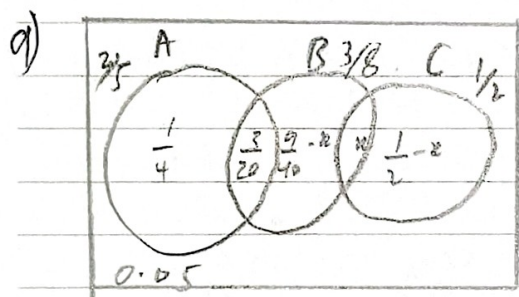 a)
A B 3/8 C 1/2
1/4 3/20 9/40 - x x 1/2 - x
0.05